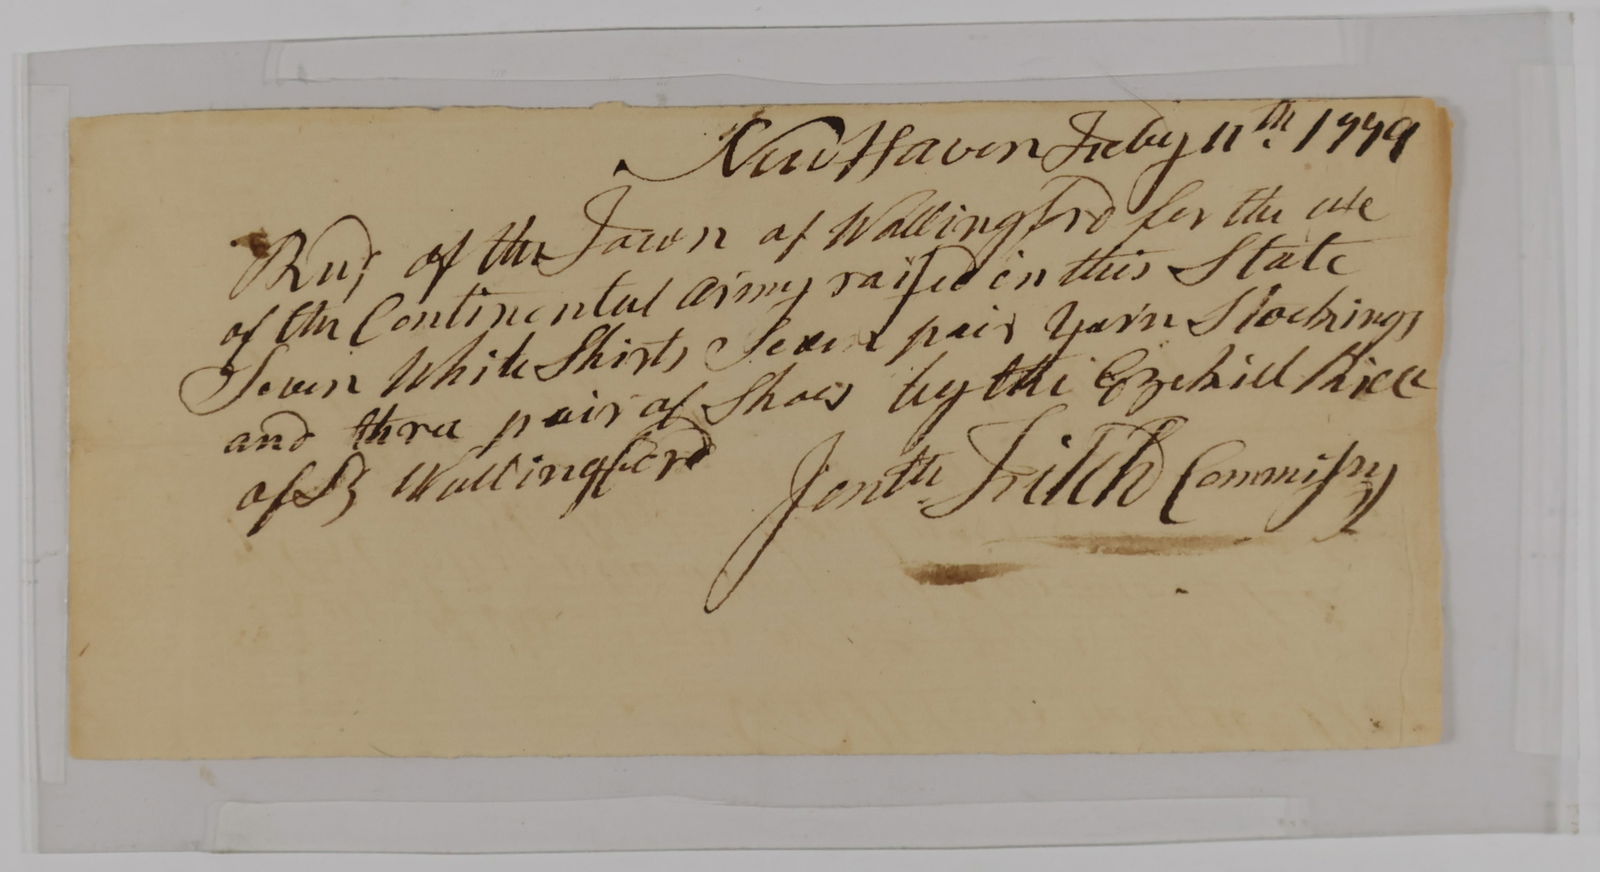 New Haven Feby 11th. 1779
Recd of the Town of Wallingford for the use
of the Continental Army raised in this State
Seven White Shirts Seven pair Yarn Stockings
and three pair of Shoes by the Ezekiel Rice
of Sd Wallingford
Jonth. Fitch Commissry